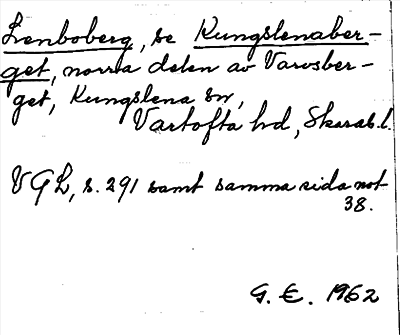 Lenboberg, se Kungslenaber-
get, norra delen av Varvsber-
get, Kungslena sn,
Vartofta hd, Skarab.l.
VGL, s. 291 samt samma sida not
38.
G. E. 1962